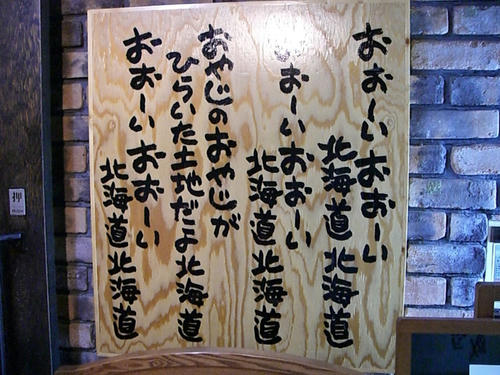 おぉーいおぉーい
北海道北海道
おぉーいおぉーい
北海道北海道
おやじのおやじが
ひらいた土地だよ北海道
おぉーいおぉーい
北海道北海道
押